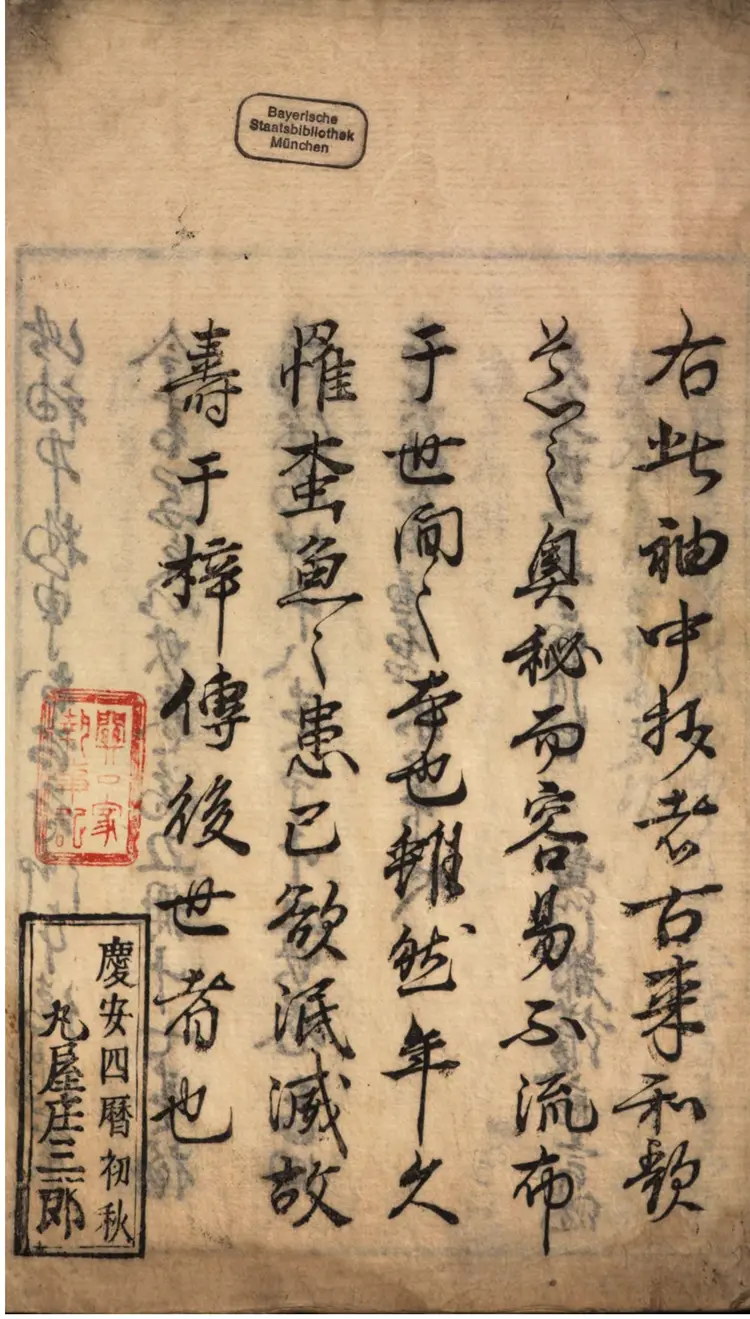 Bayerische
Staatsbibliothek
München
右此袖中抄者古来和歌
之奥秘而容易不流布
于世間之本也雖然年久
惟蚕魚之患已欲泯滅故
壽于梓傳後世者也
慶安四暦初秋
丸屋庄三郎